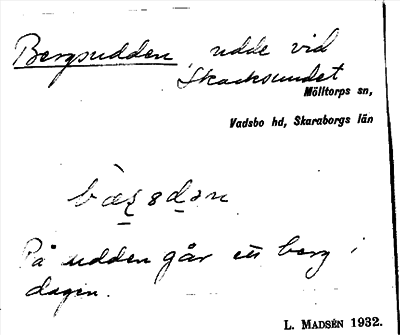 Bergsudden, udde vid
Skacksundet
Mölltorps sn,
Vadsbo hd, Skaraborgs län
På udden går ett berg i
dagen.
L. MADSÉN 1932.